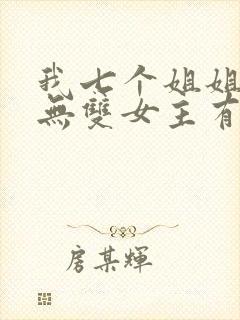 我七个姐姐
無雙女主有
房某輝